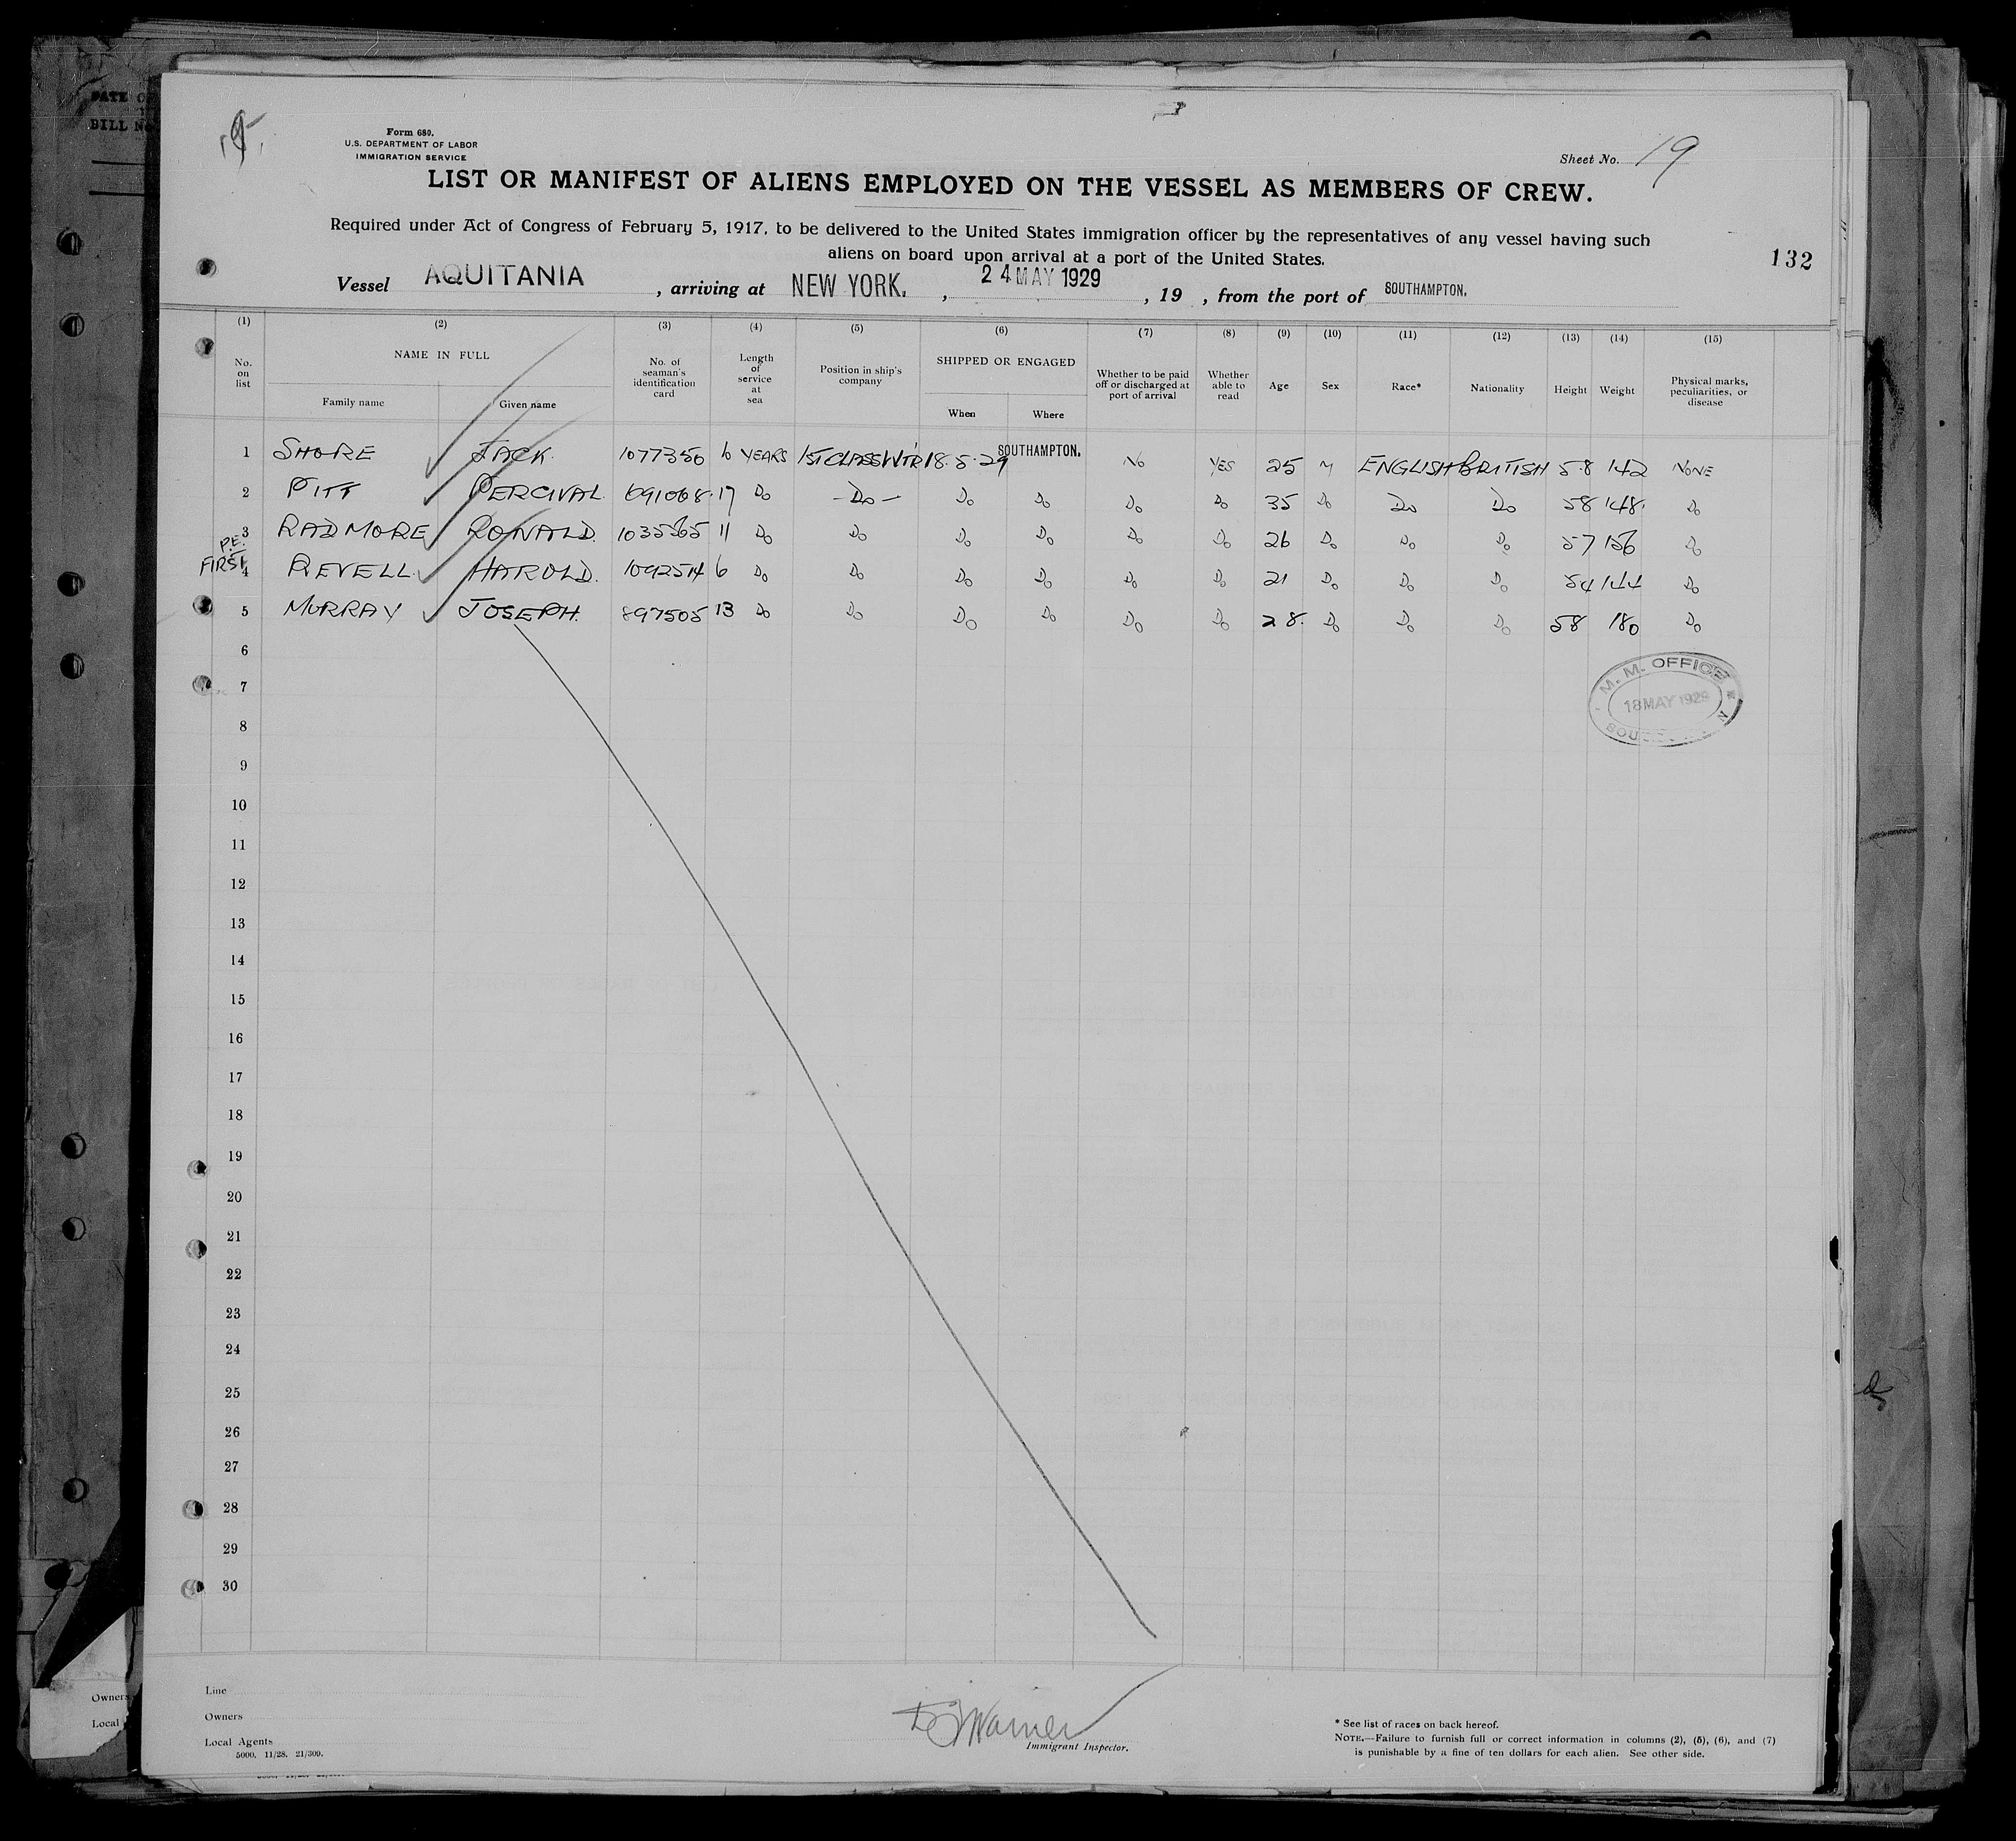 DATE O
BILL No
19.
Form 680.
U.S. DEPARTMENT OF LABOR
IMMIGRATION SERVICE
Sheet No. 19
LIST OR MANIFEST OF ALIENS EMPLOYED ON THE VESSEL AS MEMBERS OF CREW.
Required under Act of Congress of February 5, 1917, to be delivered to the United States immigration officer by the representatives of any vessel having such
aliens on board upon arrival at a port of the United States.
132
Vessel AQUITANIA , arriving at NEW YORK. , 24 MAY 1929 , 19 , from the port of SOUTHAMPTON.
(1) (2) (3) (4) (5) (6) (7) (8) (9) (10) (11) (12) (13) (14) (15)
No. on list
NAME IN FULL
Family name
Given name
No. of seaman's identification card
Length of service at sea
Position in ship's company
SHIPPED OR ENGAGED
When
Where
Whether to be paid off or discharged at port of arrival
Whether able to read
Age
Sex
Race*
Nationality
Height
Weight
Physical marks, peculiarities, or disease
1 SHORE JACK. 1077350 6 YEARS 1ST CLASS WTR 18.5.29 SOUTHAMPTON. NO YES 25 M ENGLISH BRITISH 5.8 142 NONE
2 PITT PERCIVAL. 17 Do - Do - Do Do Do Do 35 Do Do Do 58 148. Do
3 RADMORE RONALD. 1035565 11 Do Do Do Do Do Do 26 Do Do Do 57 156 Do
P.E. FIRST
4 REVELL. HAROLD. 1092514 6 Do Do Do Do Do Do 21 Do Do Do 54 144 Do
5 MURRAY JOSEPH. 897505 13 Do Do Do Do Do Do 28. Do Do Do 58 180 Do
6
7
8
9
10
11
12
13
14
15
16
17
18
19
20
21
22
23
24
25
26
27
28
29
30
M. M. OFFICE
18 MAY 1929
Line
Owners
Local Agents
5000. 11/28. 21/300.
Warner
Immigrant Inspector.
* See list of races on back hereof.
NOTE.—Failure to furnish full or correct information in columns (2), (5), (6), and (7)
is punishable by a fine of ten dollars for each alien. See other side.
Owners
Local